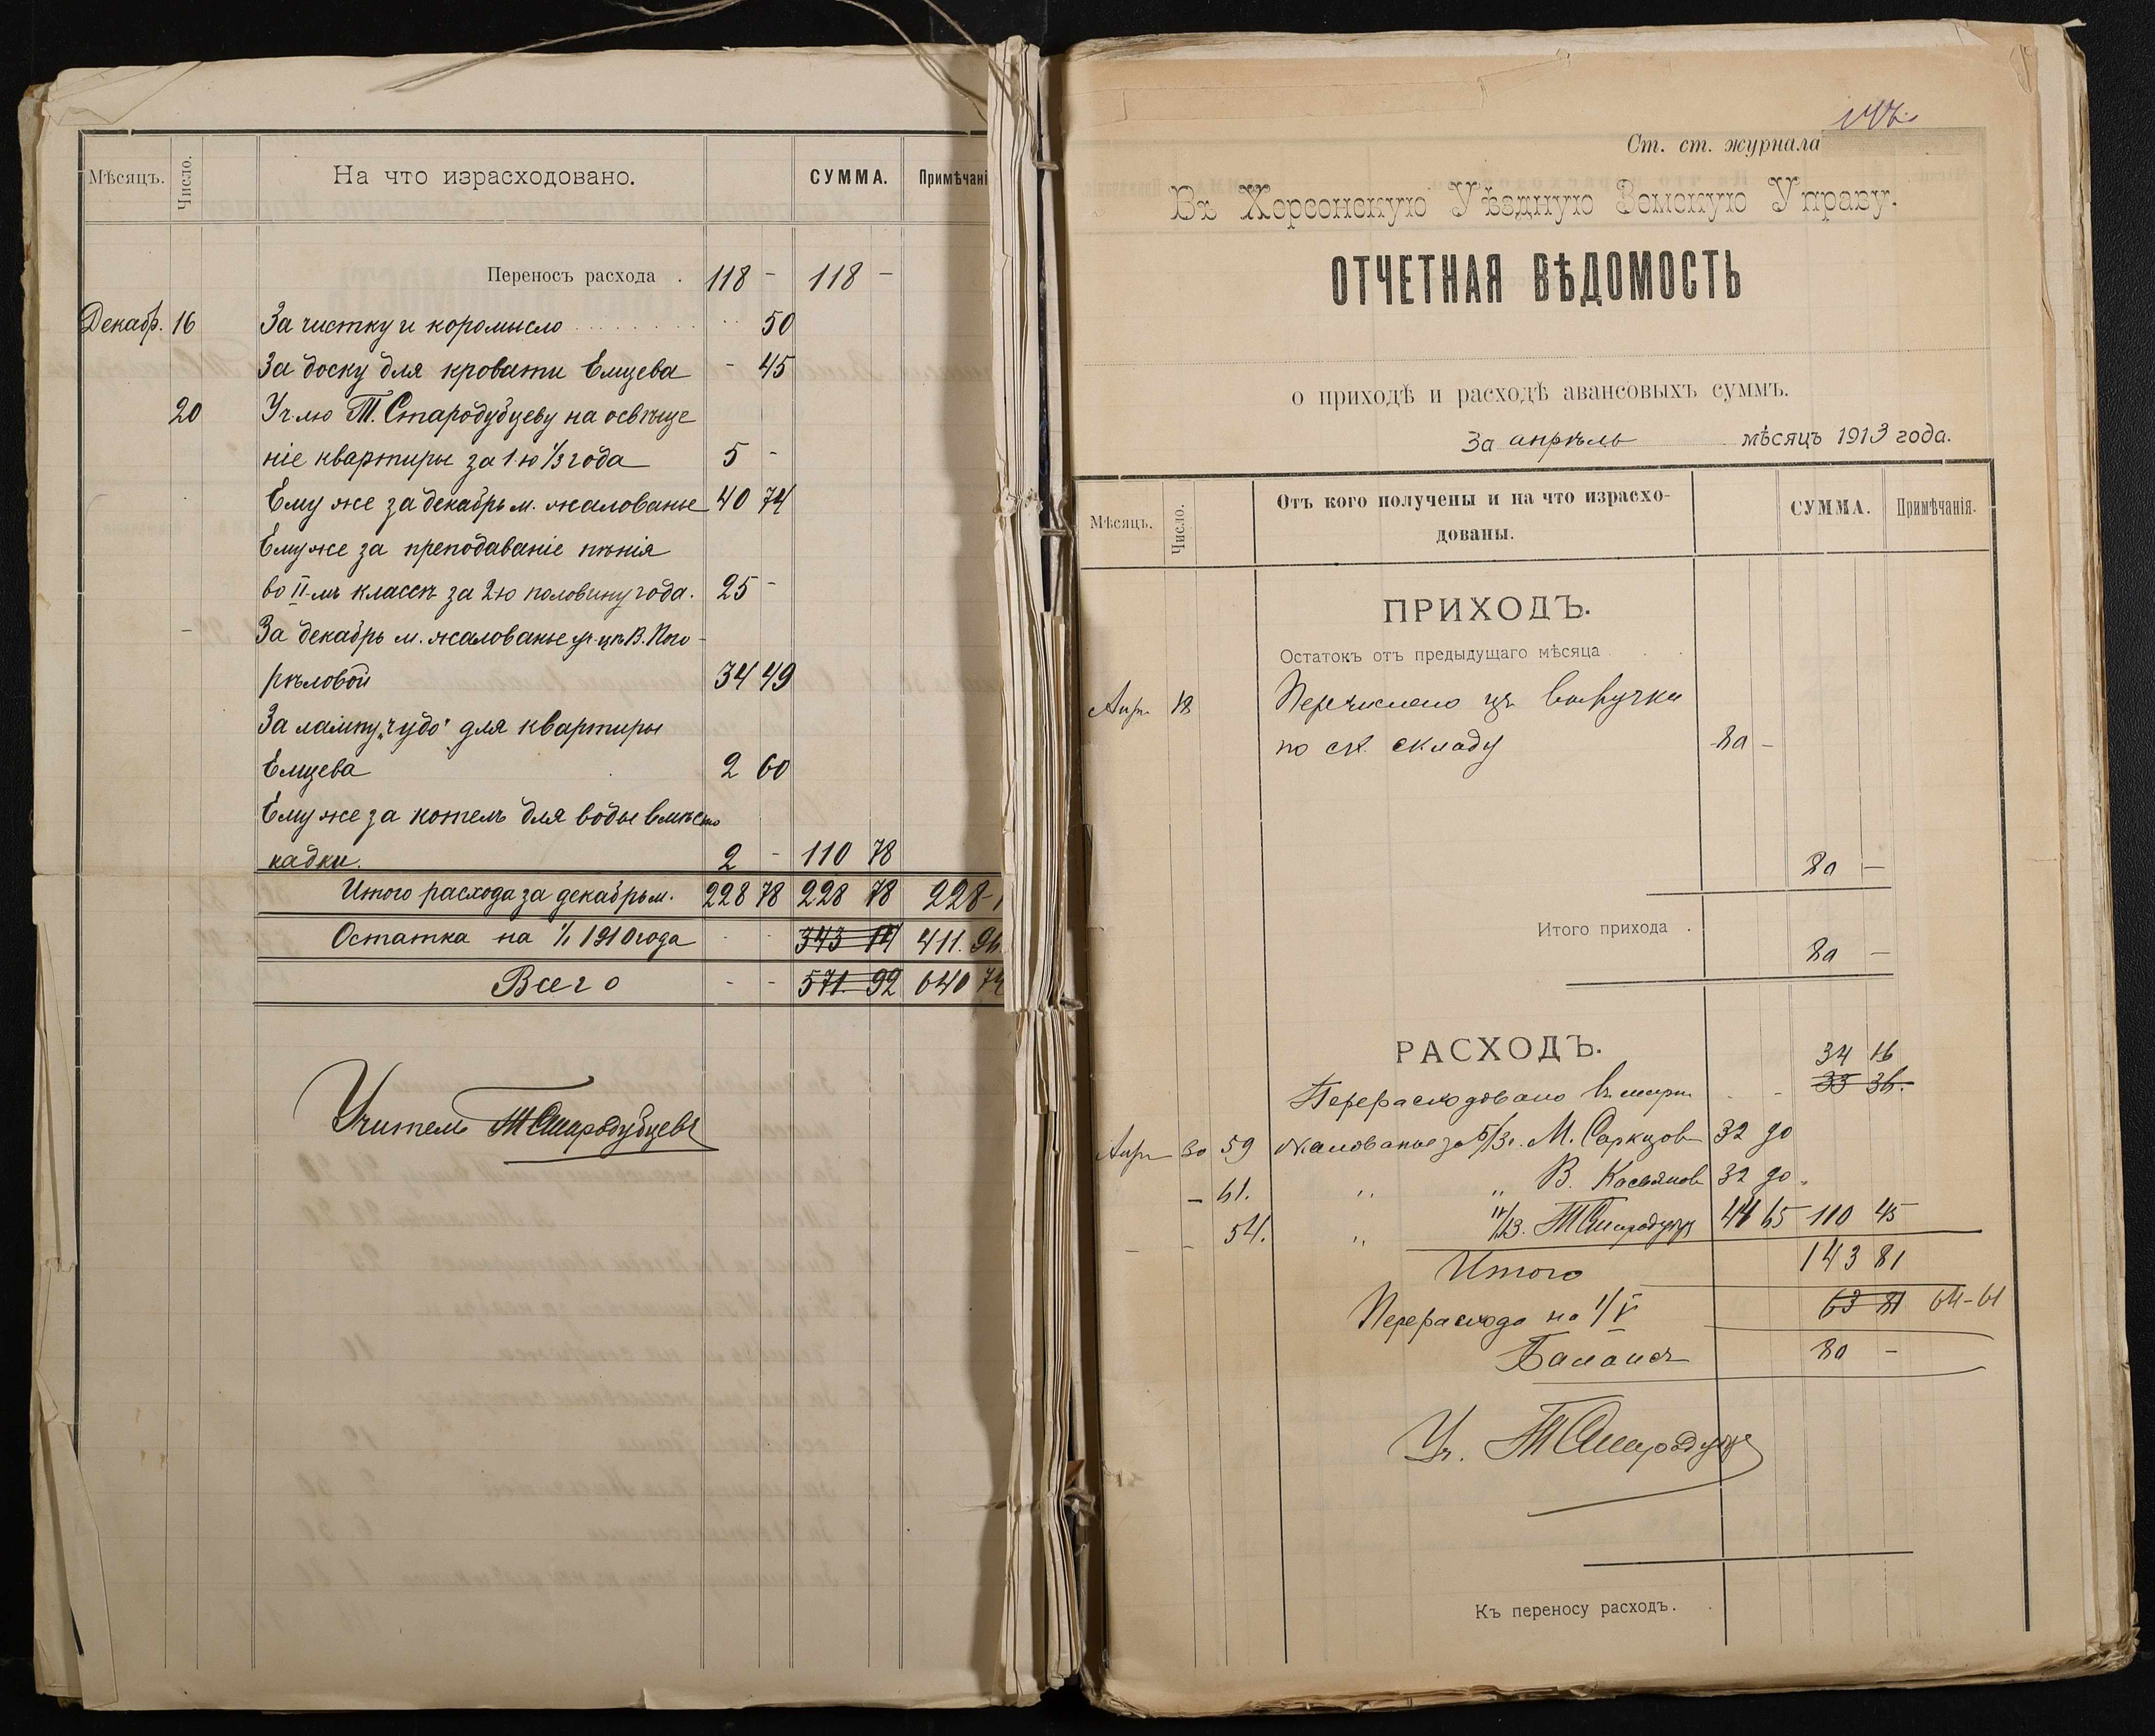 Мѣсяцъ. Число. На что израсходовано. СУММА. Примѣчані
Переносъ расхода . 118 - 118 -
Декабр. 16 За чистку и коромысло 50
За доску для кровати Емцева - 45
20 Уч-лю Т. Стародубцеву на освѣще
ніе квартиры за 1-ю 1/3 года 5 -
Ему же за декабрь м. жалованье 40 74
Ему же за преподаваніе пѣнія
во II-мъ классѣ за 2-ю половину года. 25 -
- За декабрь м. жалованье уч-цѣ В. Пого-
рѣловой 34 49
За лампу „чудо" для квартиры
Емцева 2 60
Ему же за котелъ для воды вмѣсто
кадки. 2 - 110 78
Итого расхода за декабрь м. 228 78 228 78 228-
Остатка на 1/1 1910 года - - 343 14 411. 96
Всего - - 571. 92 640 74
Учитель Т Стародубцевъ
Ст. ст. журнала
Въ Херсонскую Уѣздную Земскую Управу.
ОТЧЕТНАЯ ВѢДОМОСТЬ
о приходѣ и расходѣ авансовыхъ суммъ.
За апрѣль мѣсяцъ 1913 года.
Мѣсяцъ. Число. Отъ кого получены и на что израсхо-
дованы. СУММА. Примѣчанія.
ПРИХОДЪ.
Остатокъ отъ предыдущаго мѣсяца . . .
Апр. 18 Перечислено изъ выручки
по ск. складу 80 -
80 -
Итого прихода .
80 -
РАСХОДЪ.
34 16
Перерасходовано въ мартѣ - - 33 36.
Апр 30 59 Жалованье за М. Саркизов 32 90
- 61. " " В. Касьянов 32 90
- - 54. " Т Стародубц 44 65 110 45
Итого 143 81
Перерасхода на 1/V 63 81 64-61
Балансъ 80 -
Уч. Т Стародубце
Къ переносу расходъ. .